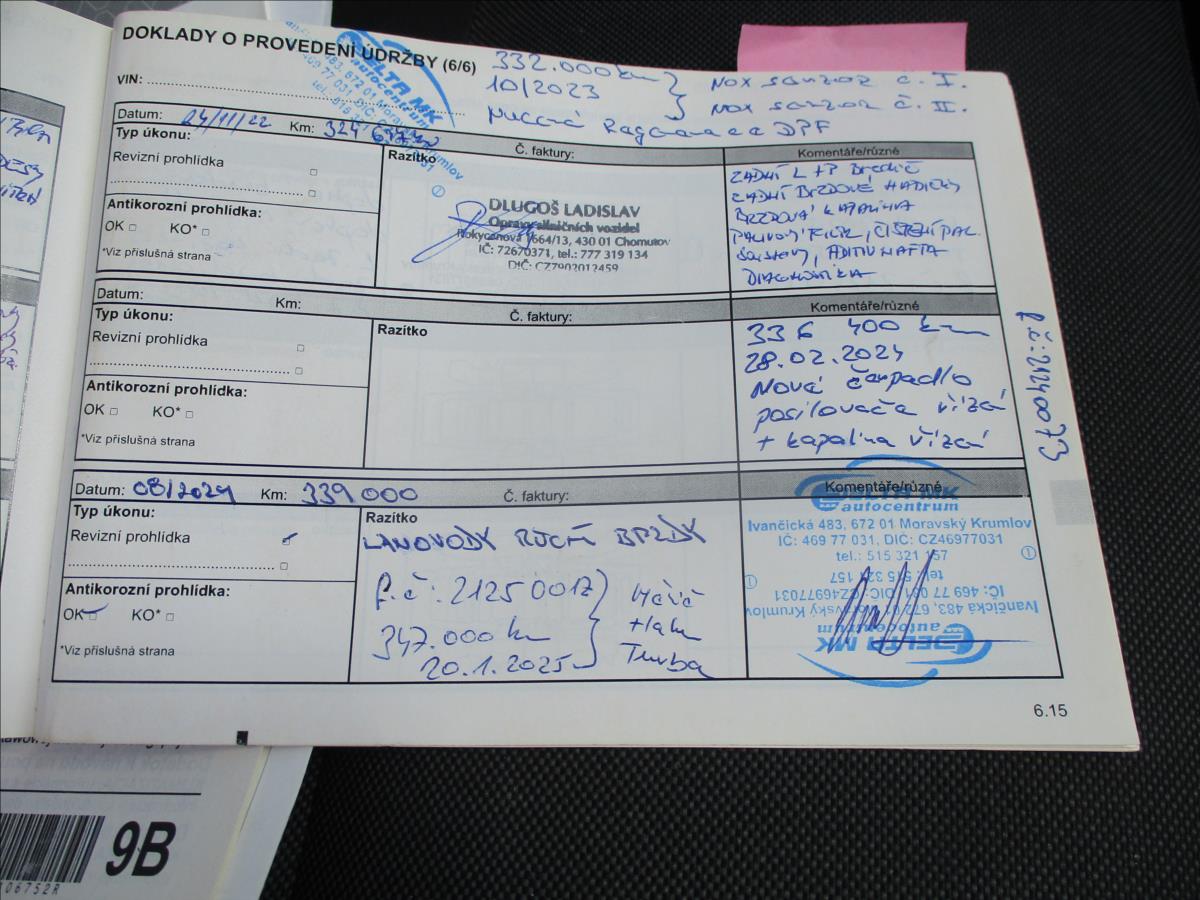 DOKLADY O PROVEDENÍ ÚDRŽBY (6/6)
332.000 km
10/2023
NOX senzor č. I.
NOX senzor č. II.
DPF
VIN:
DELTA MK
autocentrum
Datum: 24/11/22 Km: 324
Č. faktury:
Komentáře/různé
Typ úkonu:
Revizní prohlídka
Antikorozní prohlídka:
OK KO*
*Viz příslušná strana
Razítko
DLUGOŠ LADISLAV
Opravy silničních vozidel
Rokycanova 1664/13, 430 01 Chomutov
IČ: 72670371, tel.: 777 319 134
DIČ: CZ7902012459
ZADNÍ L+P
ZADNÍ BRZDOVÉ HADIČKY
BRZDOVÁ KAPALINA
PALIVOVÝ FILTR, ČIŠTĚNÍ PAL.
SOUSTAVY, ADITIV NAFTA
DIAGNOSTIKA
Datum:
Km:
Č. faktury:
Komentáře/různé
Typ úkonu:
Revizní prohlídka
Antikorozní prohlídka:
OK KO*
*Viz příslušná strana
Razítko
336 400 km
28.02.2024
Nová čerpadlo
posilovača řízení
+ kapalina řízení
Datum: 08/2024 Km: 339000
Č. faktury:
Komentáře/různé
Typ úkonu:
Revizní prohlídka
Antikorozní prohlídka:
OK KO*
*Viz příslušná strana
Razítko
LANOVODY RUČNÍ BRZDY
f.č: 21250017
347.000 km
20.1.2025
tlaku
Turba
DELTA MK
autocentrum
Ivančická 483, 672 01 Moravský Krumlov
IČ: 469 77 031, DIČ: CZ46977031
tel.: 515 321 157
tel.: 515 321 157
IČ: 469 77 031, DIČ: CZ46977031
Ivančická 483, 672 01 Moravský Krumlov
autocentrum
DELTA MK
6.15
9B
06752R